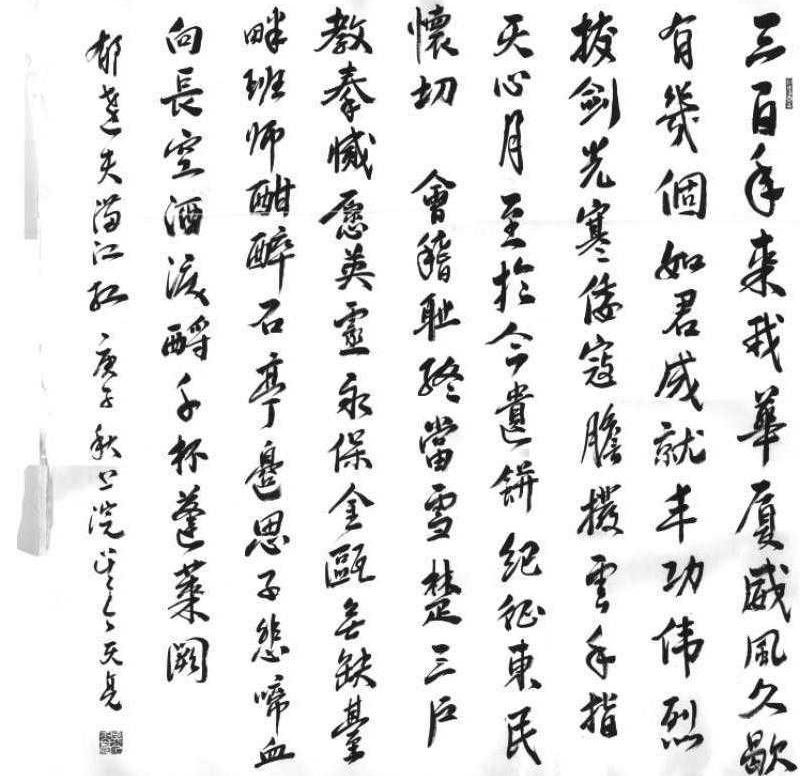 三百年来我華夏威風久歇
有幾個如君成就丰功伟烈
拔劍光寒倭寇膽撥雲手指
天心月至於今遺餅紀征東民
懷切 會稽耻終當雪楚三户
教秦滅愿英靈永保金甌無缺臺
畔班师酣醉石亭邊思子悲啼血
向長空洒淚酹千杯蓬萊闕
郁達夫满江红 庚子秋上浣 天亮